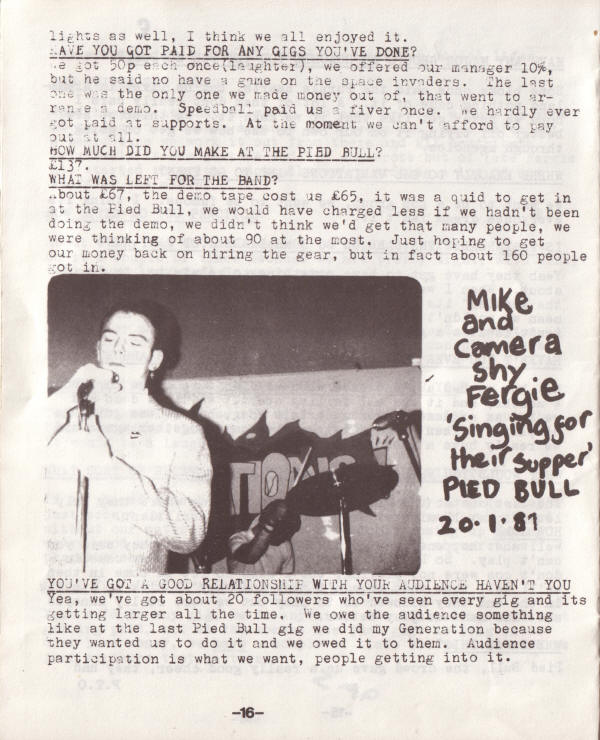 lights as well, I think we all enjoyed it.
HAVE YOU GOT PAID FOR ANY GIGS YOU'VE DONE?
We got 50p each once(laughter), we offered our manager 10%,
but he said no have a game on the space invaders. The last
one was the only one we made money out of, that went to ar-
range a demo. Speedball paid us a fiver once. We hardly ever
got paid at supports. At the moment we can't afford to pay
out at all.
HOW MUCH DID YOU MAKE AT THE PIED BULL?
£137.
WHAT WAS LEFT FOR THE BAND?
About £67, the demo tape cost us £65, it was a quid to get in
at the Pied Bull, we would have charged less if we hadn't been
doing the demo, we didn't think we'd get that many people, we
were thinking of about 90 at the most. Just hoping to get
our money back on hiring the gear, but in fact about 160 people
got in.
MIKE
and
Camera
shy
Fergie
'Singing for
their supper'
PIED BULL
20.1.81
YOU'VE GOT A GOOD RELATIONSHIP WITH YOUR AUDIENCE HAVEN'T YOU
Yea, we've got about 20 followers who've seen every gig and its
getting larger all the time. We owe the audience something
like at the last Pied Bull gig we did my Generation because
they wanted us to do it and we owed it to them. Audience
participation is what we want, people getting into it.
-16-